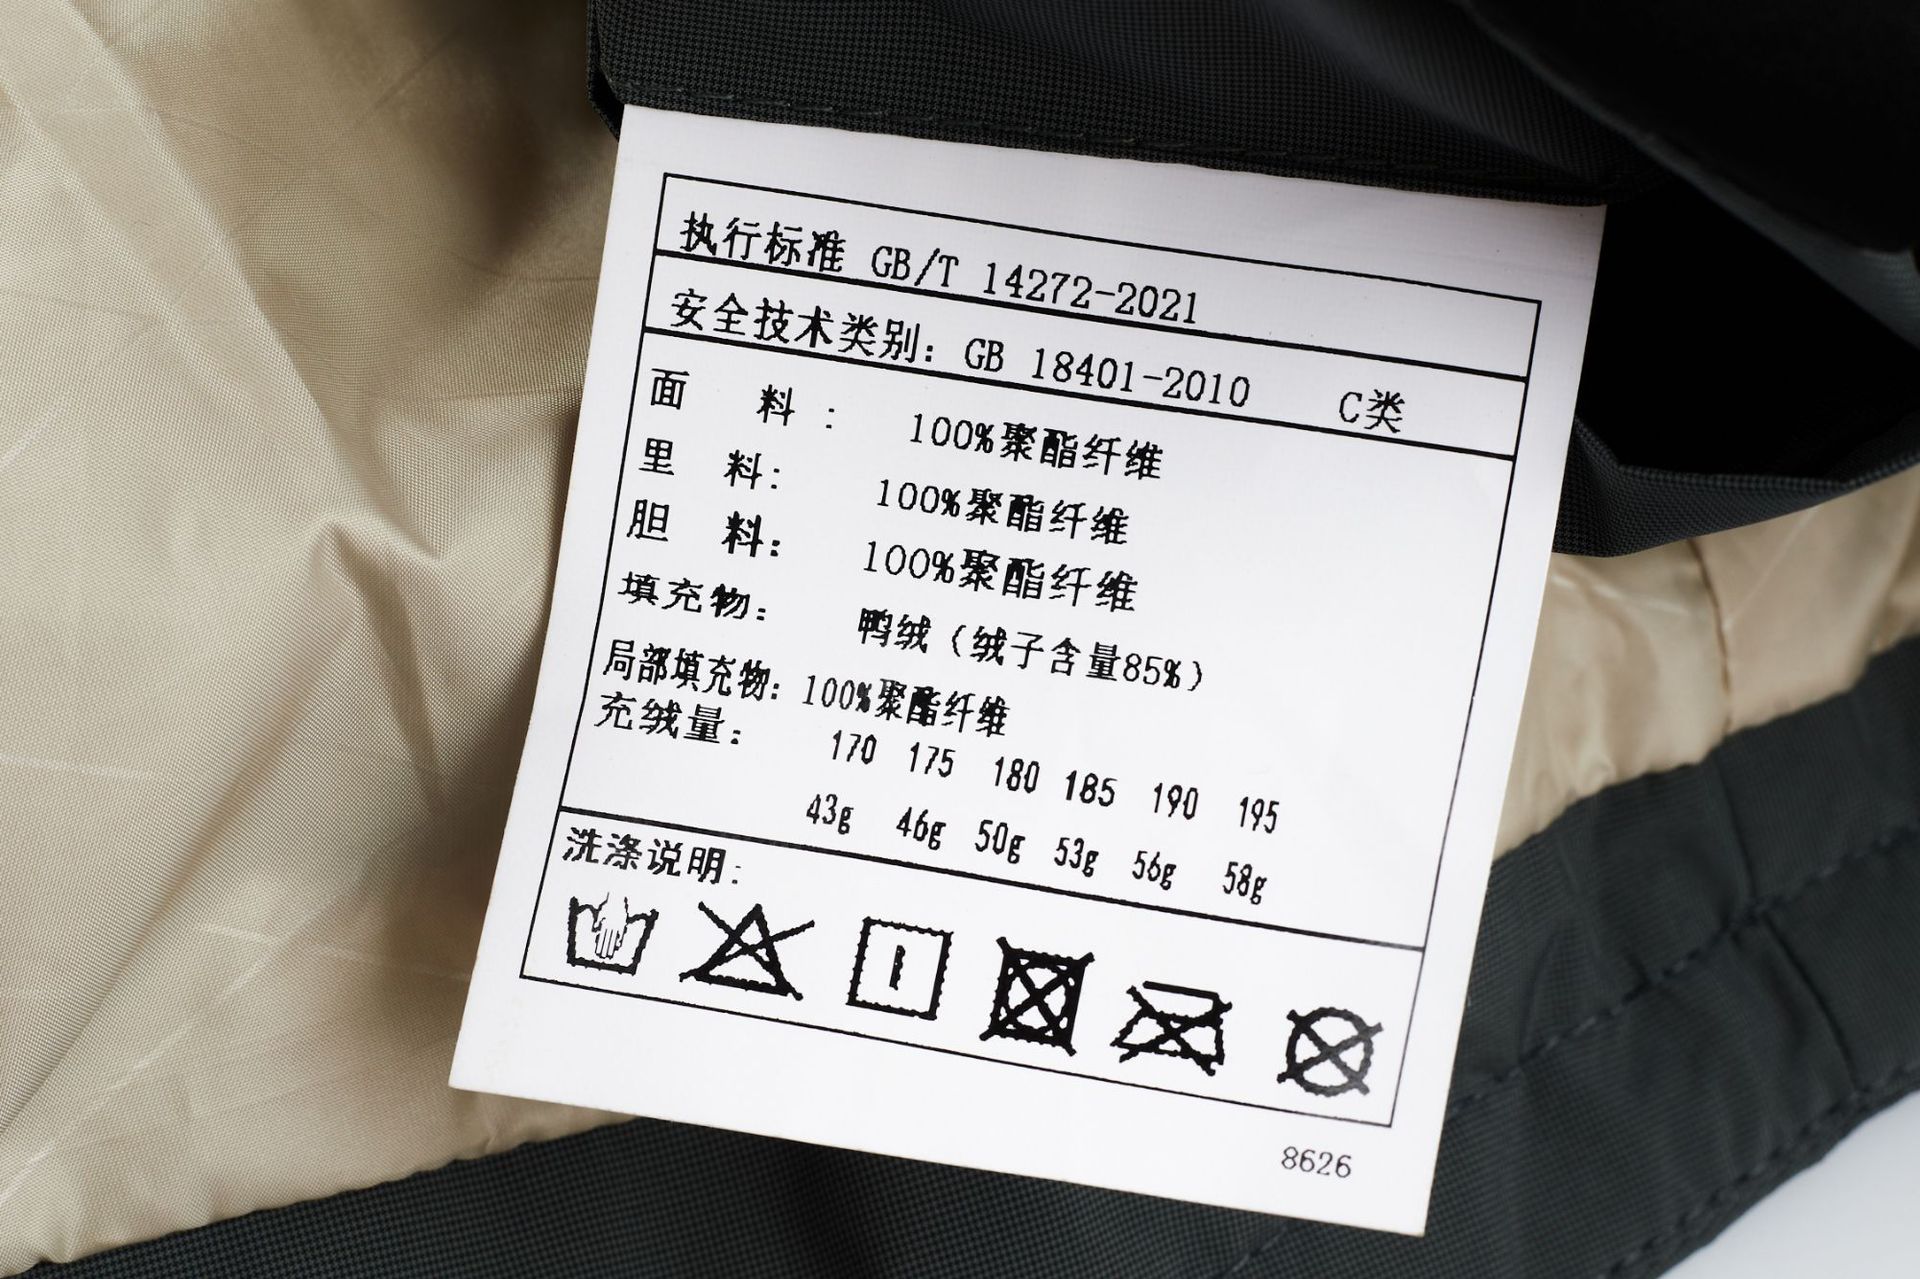 执行标准 GB/T 14272-2021
安全技术类别：GB 18401-2010 C类
面 料： 100%聚酯纤维
里 料： 100%聚酯纤维
胆 料： 100%聚酯纤维
填充物： 鸭绒（绒子含量85%）
局部填充物：100%聚酯纤维
充绒量： 170 175 180 185 190 195
43g 46g 50g 53g 56g 58g
洗涤说明：
8626